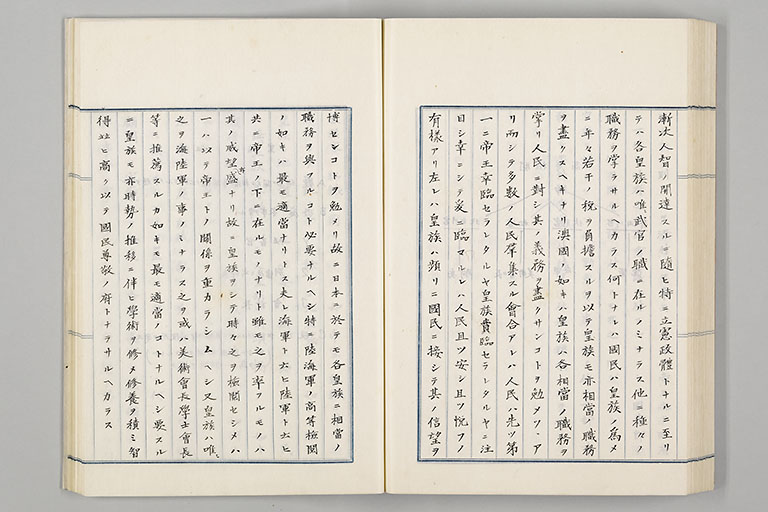 漸次人智ノ開達スルニ隨ヒ特ニ立憲政體トナルニ至リ
テハ各皇族ハ唯武官ノ職ニ在ルノミナラス他ニ種々ノ
職務ヲ掌ラサルヘカラス何トナレハ國民ハ皇族ノ爲メ
ニ年々若干ノ税ヲ負擔スルヲ以テ皇族モ亦相當ノ職務
ヲ盡クスヘキナリ澳國ノ如キハ皇族ハ各相當ノ職務ヲ
掌リ人民ニ對シ其ノ義務ヲ盡クサンコトヲ勉メツヽア
リ而シテ多數ノ人民羣集スル會合アレハ人民ハ先ツ第
一ニ帝王幸臨セラレタルヤ皇族貴臨セラレタルヤニ注
目シ幸ニシテ之ニ臨マルレハ人民且ツ安シ且ツ悦フノ
有樣アリ左レハ皇族ハ頻リニ國民ニ接シテ其ノ信望ヲ
博センコトヲ勉メリ故ニ日本ニ於テモ各皇族ニ相當ノ
職務ヲ與フルコト必要ナルヘシ特ニ陸海軍ノ高等檢閲
ノ如キハ最モ適當ナリトス夫レ海軍ト云ヒ陸軍ト云ヒ
共ニ帝王ノ下ニ在ルモノナリト雖モ之ヲ率フルモノハ
其ノ威望盛ナリ故ニ皇族ヲシテ時々之ヲ檢閲セシメハ
一ハ以テ帝王トノ關係ヲ重カラシムヘシ又皇族ハ唯ニ
之ヲ海陸軍ノ事ノミナラス之ヲ或ハ美術會長學士會長
等ニ推薦スルカ如キモ最モ適當ノコトナルヘシ要スル
ニ皇族モ亦時勢ノ推移ニ伴ヒ學術ヲ修メ修養ヲ積ミ智
得並ヒ高ク以テ國民尊敬ノ府トナラサルヘカラス